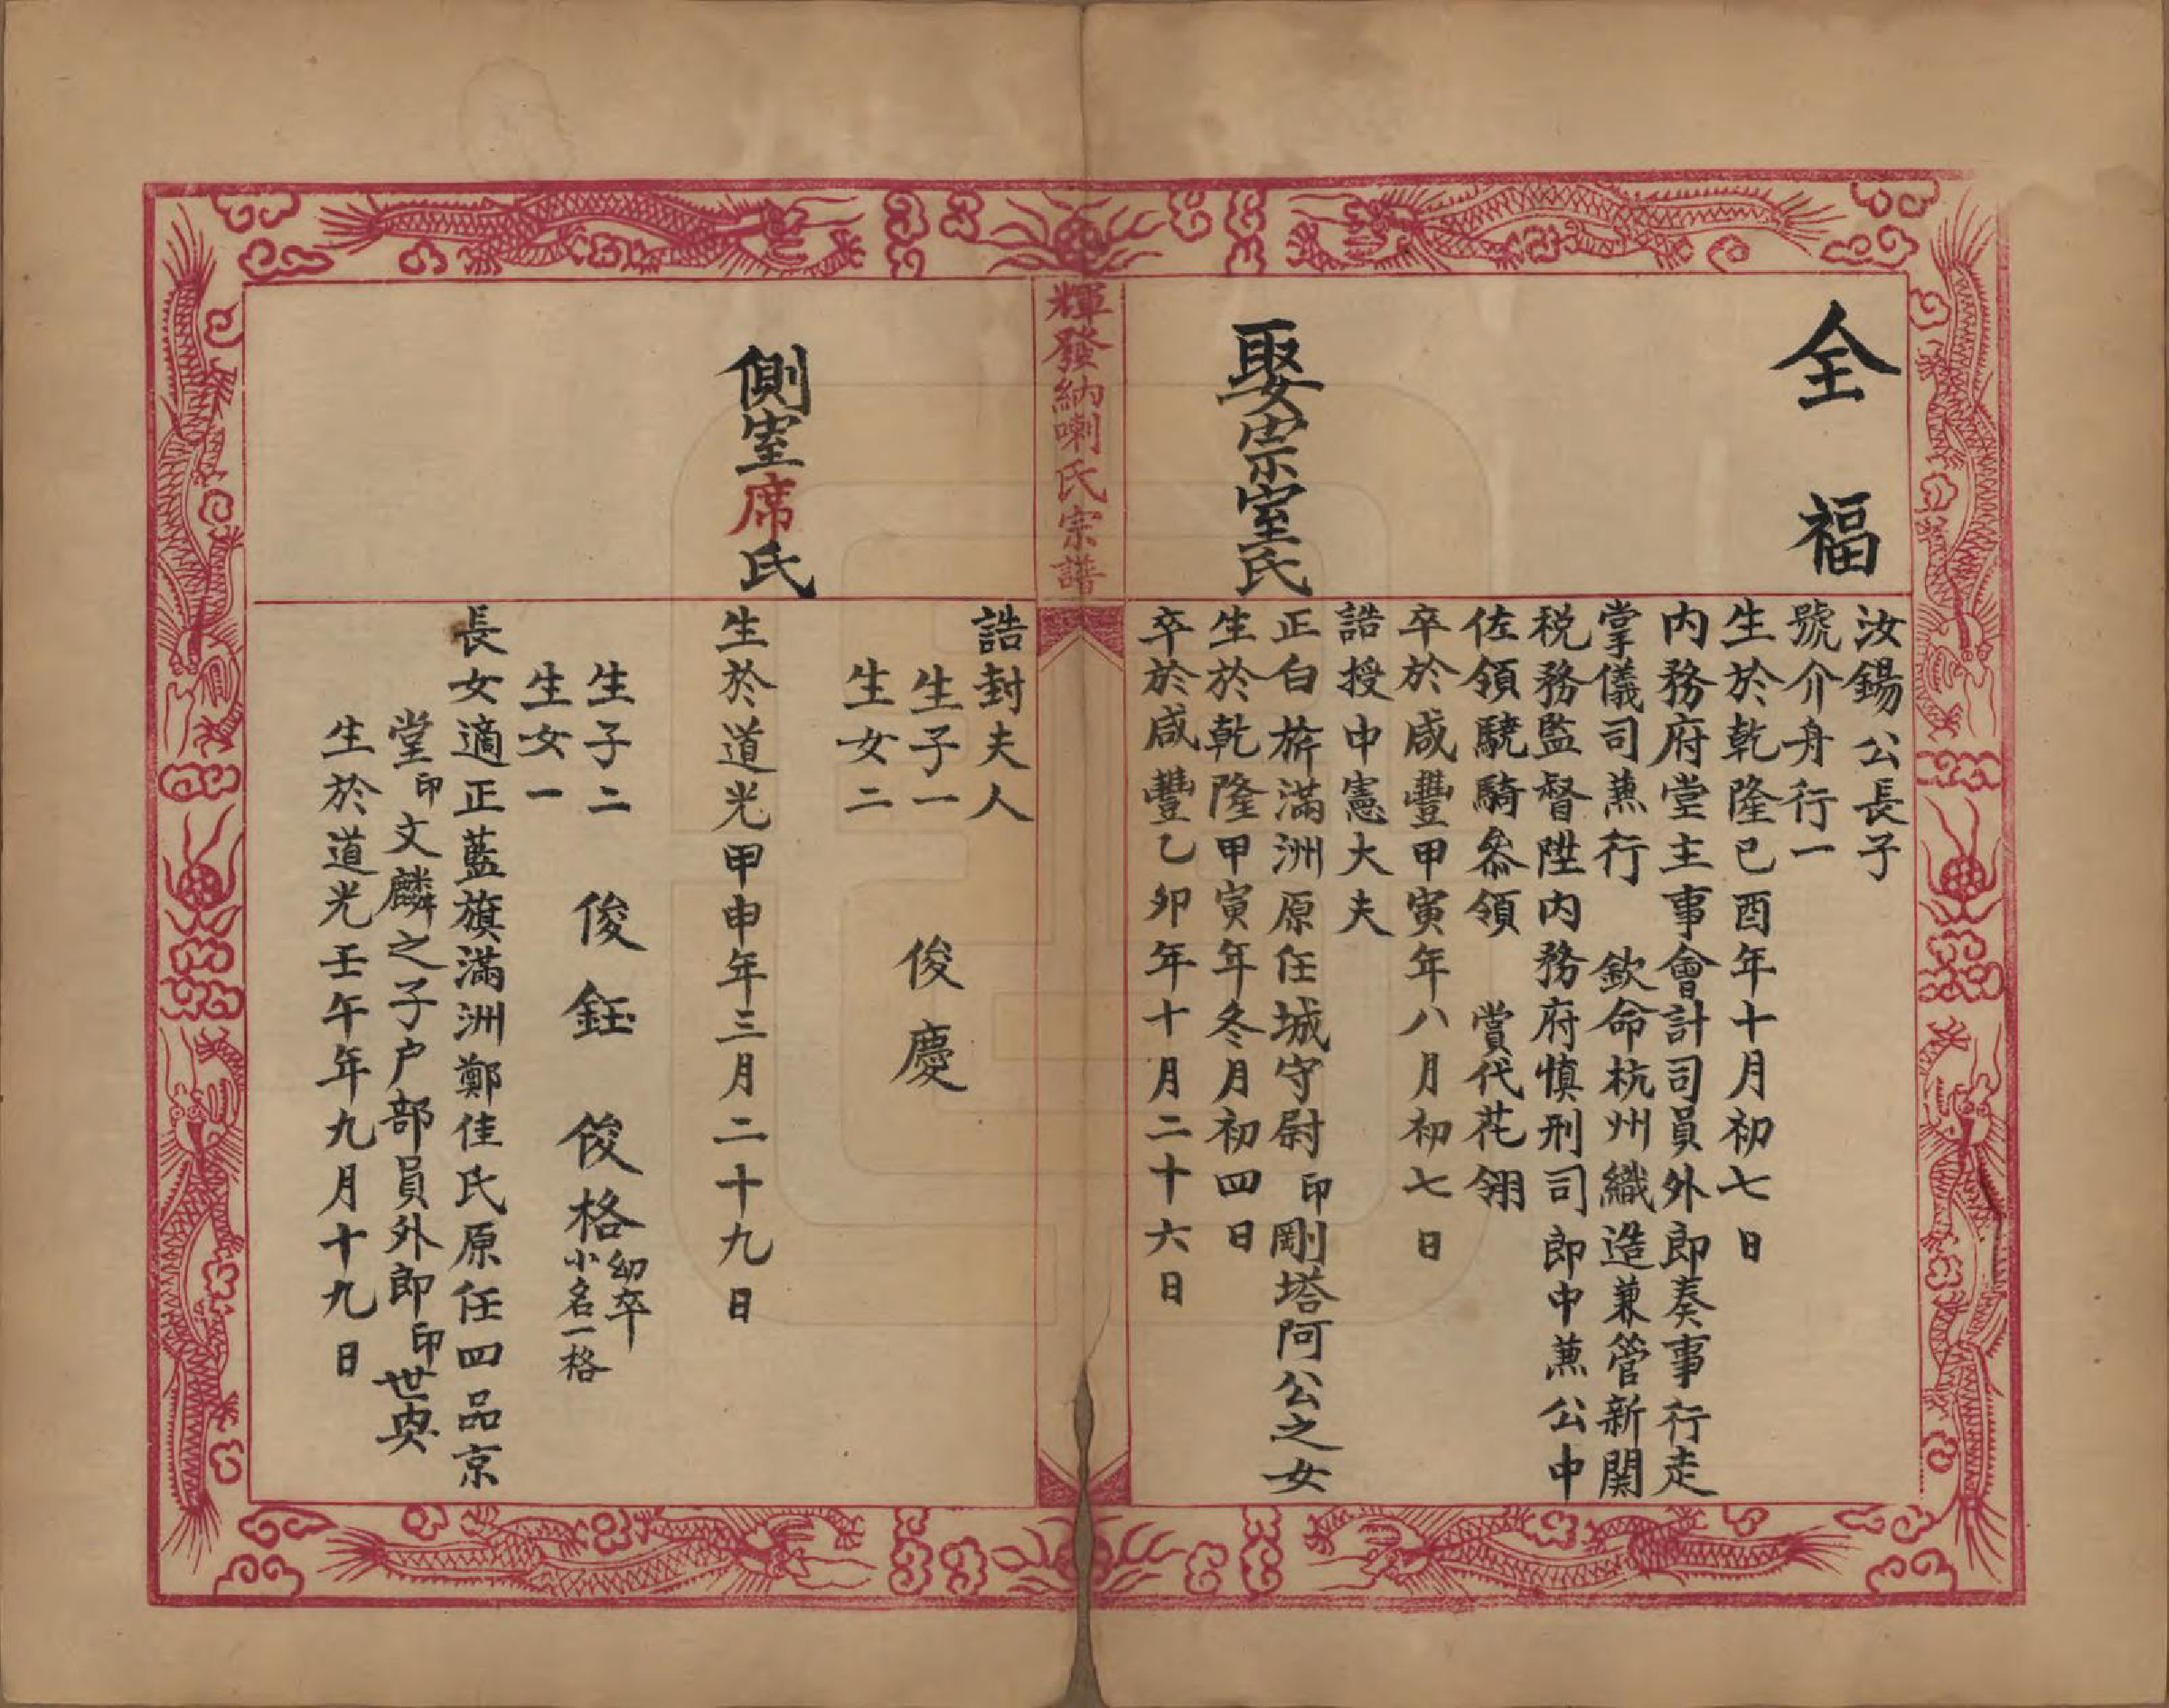 全福
汝錫公長子
號介舟行一
生於乾隆己酉年十月初七日
内務府堂主事會計司員外郎奏事行走
掌儀司蕙行 欽命杭州織造兼管新関
税務監督陞内務府慎刑司郎中蕙公中
佐領驍騎叅領 賞代花翎
卒於咸豐甲寅年八月初七日
誥授中憲大夫
娶宗室氏
正白旂滿洲原任城守尉印剛塔阿公之女
生於乾隆甲寅年冬月初四日
卒於咸豐乙卯年十月二十六日
輝發納喇氏宗譜
誥封夫人
生子一 俊慶
生女二
側室席氏
生於道光甲申年三月二十九日
生子二 俊鈺 俊格 幼卒
小名一格
生女一
長女適正藍旗滿洲鄭佳氏原任四品京
堂印文麟之子户部員外郎印世奐
生於道光壬午年九月十九日